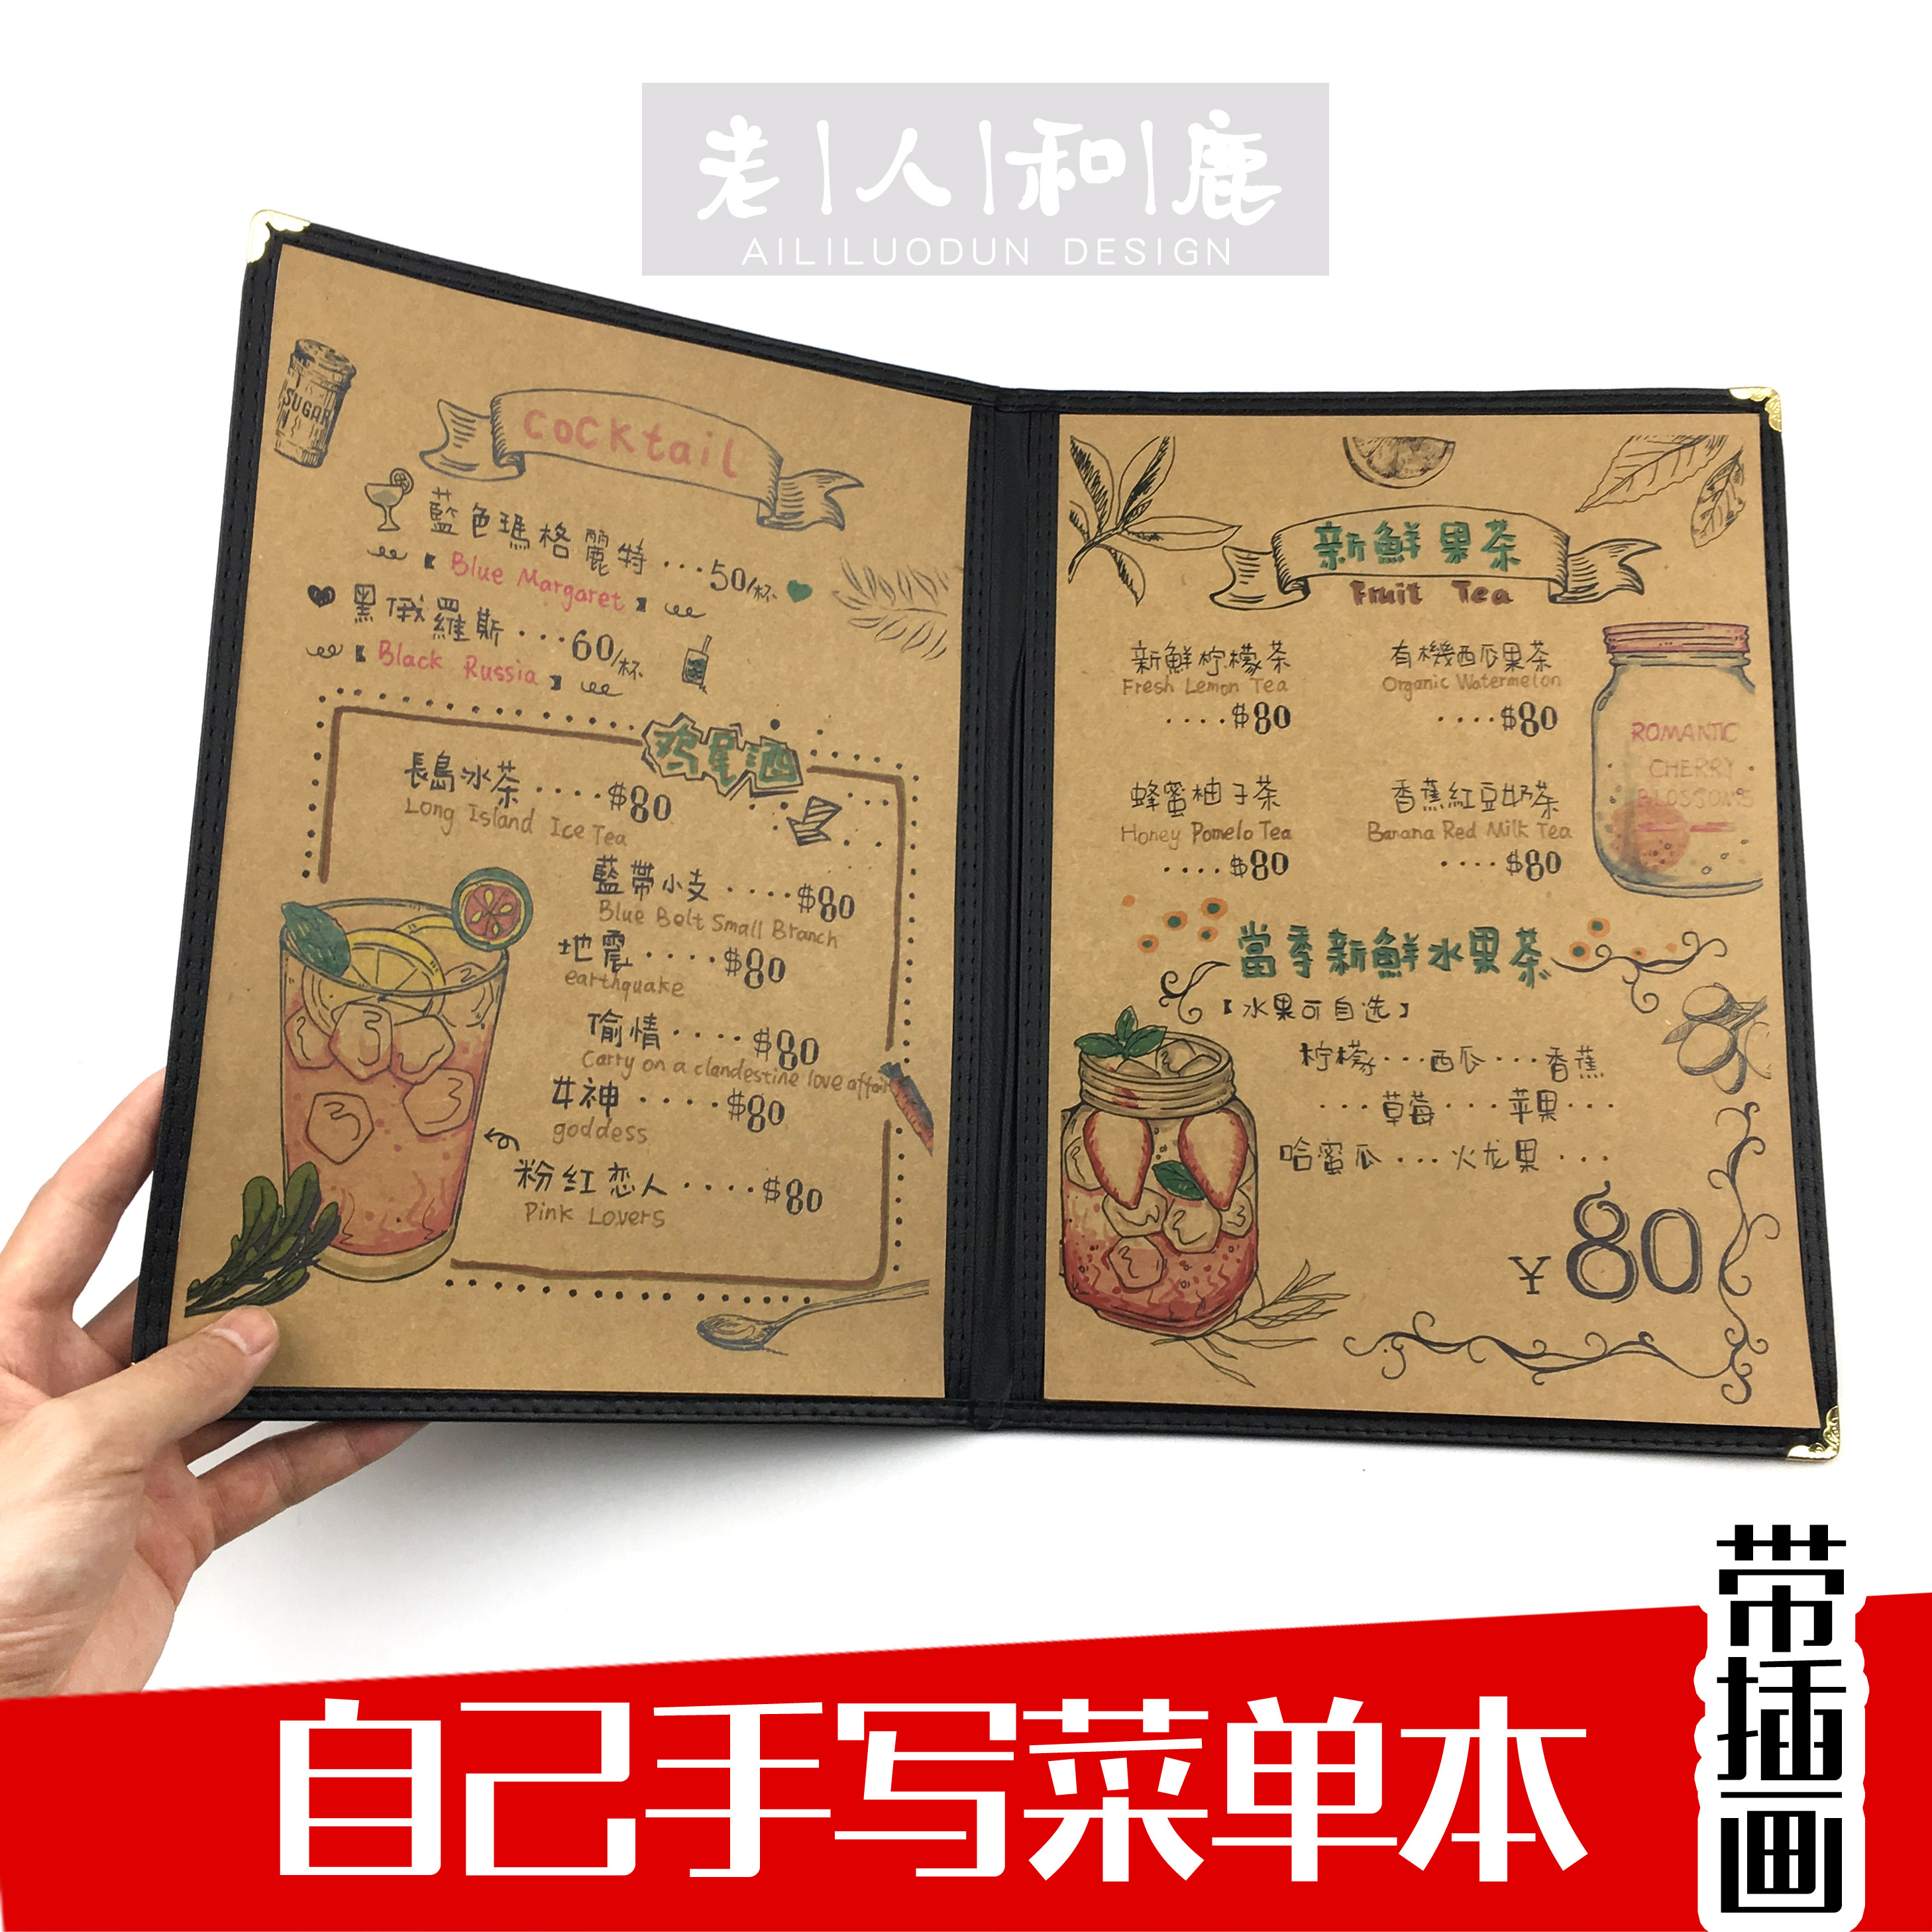 老人和鹿
AILILUODUN DESIGN
SUGAR
Cocktail
藍色瑪格麗特···50/杯
【Blue Margaret】
黑俄羅斯···60/杯
【Black Russia】
鸡尾酒
長島冰茶····$80
Long Island Ice Tea
藍帶小支····$80
Blue Belt Small Branch
地震····$80
earthquake
偷情····$80
Carry on a clandestine love affair
女神····$80
goddess
粉红恋人····$80
Pink Lovers
新鮮果茶
Fruit Tea
新鮮柠檬茶
Fresh Lemon Tea
····$80
有機西瓜果茶
Organic Watermelon
····$80
蜂蜜柚子茶
Honey Pomelo Tea
····$80
香蕉紅豆奶茶
Banana Red Milk Tea
····$80
ROMANTIC
CHERRY
BLOSSOMS
當季新鮮水果茶
【水果可自选】
柠檬···西瓜···香蕉
···草莓···苹果···
哈蜜瓜···火龙果···
¥80
自己手写菜单本
带插画